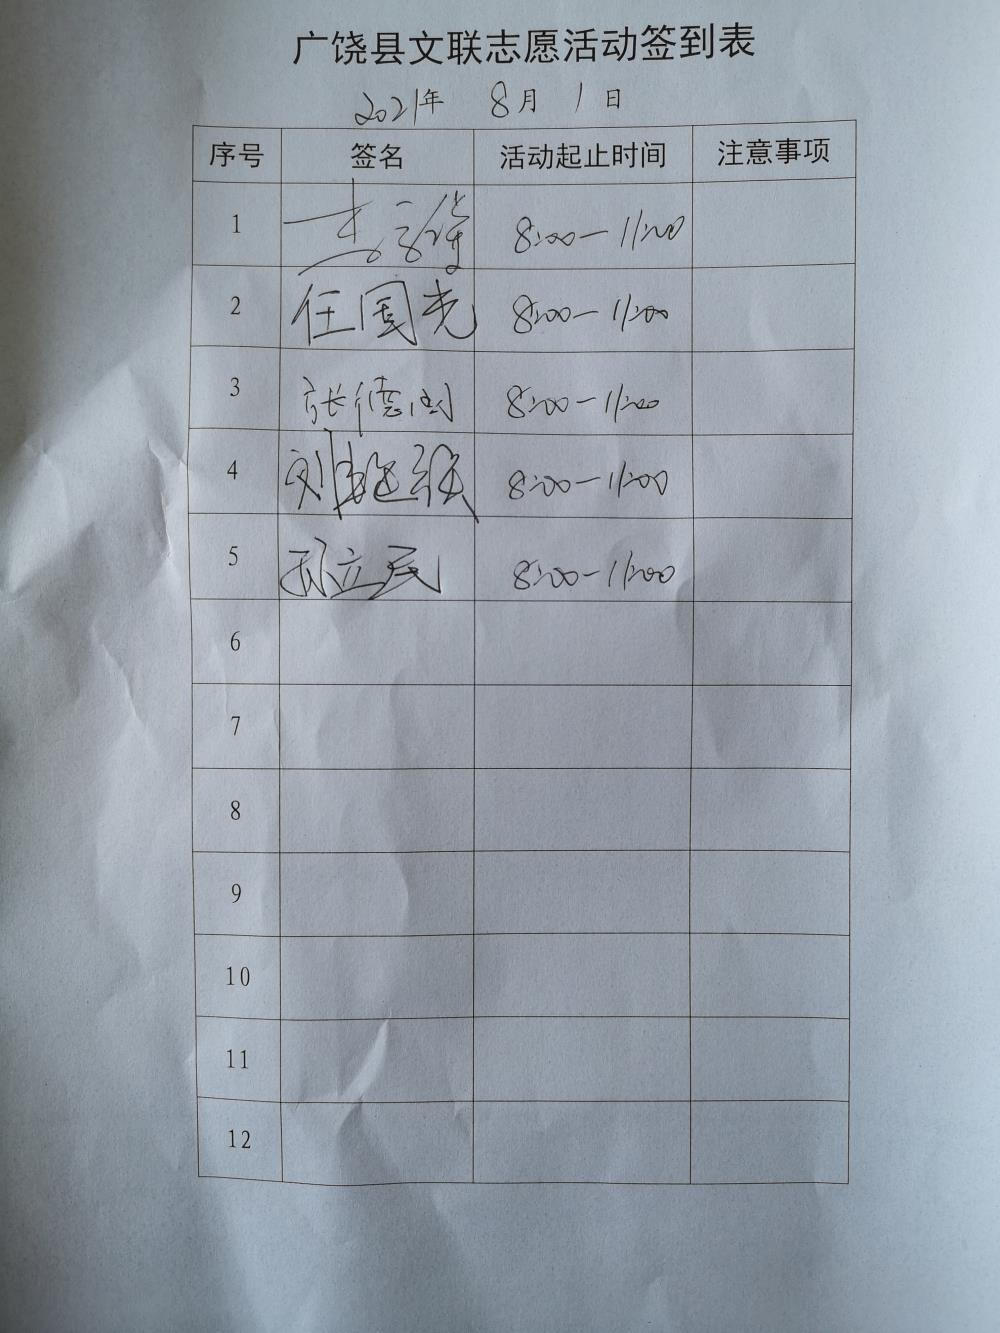 广饶县文联志愿活动签到表
2021年 8月 1日
序号 签名 活动起止时间 注意事项
1 8:00—11:00
2 任国光 8:00—11:00
3 张德国 8:00—11:00
4 刘 8:00—11:00
5 孙立民 8:00—11:00
6
7
8
9
10
11
12